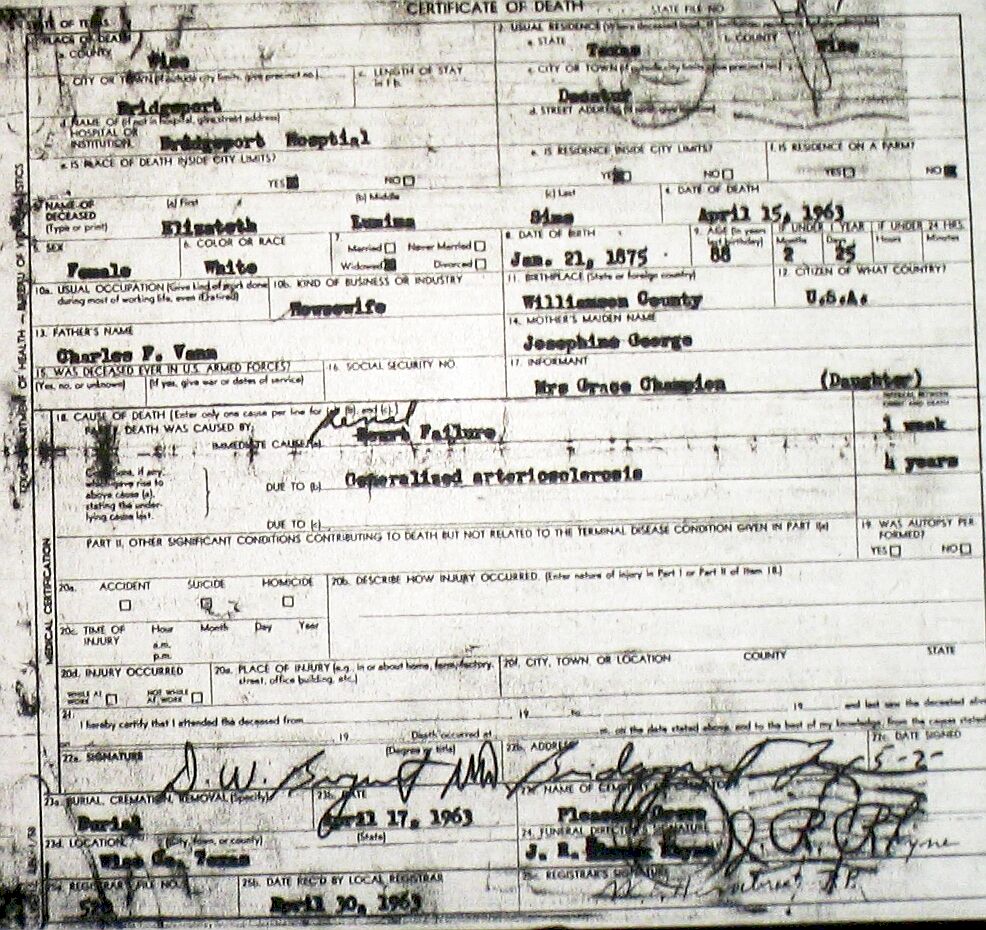 CERTIFICATE OF DEATH STATE FILE NO.
STATE OF TEXAS
1. PLACE OF DEATH 2. USUAL RESIDENCE
a. COUNTY a. STATE b. COUNTY
Wise Texas Wise
b. CITY OR TOWN (If outside city limits, give precinct no.) c. LENGTH OF STAY c. CITY OR TOWN
Bridgeport Decatur
d. NAME OF (If not in hospital, give street address) d. STREET ADDRESS
HOSPITAL OR
INSTITUTION Bridgeport Hosptial
e. IS PLACE OF DEATH INSIDE CITY LIMITS? e. IS RESIDENCE INSIDE CITY LIMITS? f. IS RESIDENCE ON A FARM?
YES NO YES NO YES NO
NAME OF (a) First (b) Middle (c) Last 4. DATE OF DEATH
DECEASED
(Type or print) Elizabeth Sims April 15, 1963
5. SEX 6. COLOR OR RACE 7. Married Never Married 8. DATE OF BIRTH 9. AGE (In years IF UNDER 1 YEAR IF UNDER 24 HRS.
last birthday) Months Days Hours Minutes
Female White Widowed Divorced Jan. 21, 1875 88 2 25
10a. USUAL OCCUPATION (Give kind of work done 10b. KIND OF BUSINESS OR INDUSTRY 11. BIRTHPLACE (State or foreign country) 12. CITIZEN OF WHAT COUNTRY?
during most of working life, even if retired)
Housewife Williamson County U.S.A.
13. FATHER'S NAME 14. MOTHER'S MAIDEN NAME
Charles F. Vann Josephine George
15. WAS DECEASED EVER IN U.S. ARMED FORCES? 16. SOCIAL SECURITY NO. 17. INFORMANT
(Yes, no, or unknown) (If yes, give war or dates of service)
Mrs Grace Champion (Daughter)
18. CAUSE OF DEATH (Enter only one cause per line for (a), (b), and (c).) INTERVAL BETWEEN
PART I. DEATH WAS CAUSED BY: renal
IMMEDIATE CAUSE (a) Heart Failure 1 week
Conditions, if any,
which gave rise to
above cause (a),
stating the under-
lying cause last.
DUE TO (b) Generalized arteriosclerosis 4 years
DUE TO (c)
PART II, OTHER SIGNIFICANT CONDITIONS CONTRIBUTING TO DEATH BUT NOT RELATED TO THE TERMINAL DISEASE CONDITION GIVEN IN PART I(a)
19. WAS AUTOPSY PER-
FORMED?
YES NO
MEDICAL CERTIFICATION
20a. ACCIDENT SUICIDE HOMICIDE 20b. DESCRIBE HOW INJURY OCCURRED. (Enter nature of injury in Part I or Part II of Item 18.)
20c. TIME OF Hour Month Day Year
INJURY a.m.
p.m.
20d. INJURY OCCURRED 20e. PLACE OF INJURY (e.g., in or about home, farm, factory, 20f. CITY, TOWN, OR LOCATION COUNTY STATE
street, office building, etc.)
WHILE AT WORK NOT WHILE AT WORK
21. I hereby certify that I attended the deceased from 19 to 19 and last saw the deceased
19 Death occurred at m. on the date stated above, and to the best of my knowledge, from the causes stated
22a. SIGNATURE (Degree or title) 22b. ADDRESS 22c. DATE SIGNED
D. W. MD Bridgeport 5-2-
23a. BURIAL, CREMATION, REMOVAL (Specify) 23b. DATE 23c. NAME OF CEMETERY
Burial April 17, 1963 Pleasant Grove
23d. LOCATION (City, town, or county) (State) 24. FUNERAL DIRECTOR'S SIGNATURE
Wise Co, Texas J. R. Rhyne J. R. Rhyne
25a. REGISTRAR'S FILE NO. 25b. DATE REC'D BY LOCAL REGISTRAR 25c. REGISTRAR'S SIGNATURE
April 30, 1963